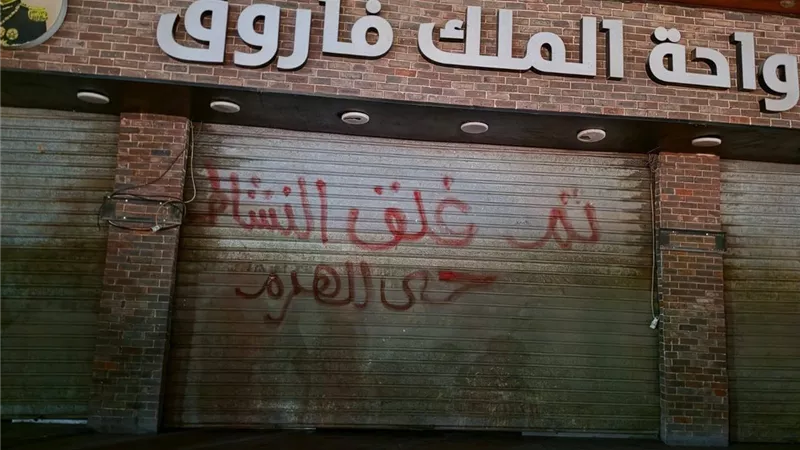 واحة الملك فاروق
تم غلق النشاط
حى الهرم